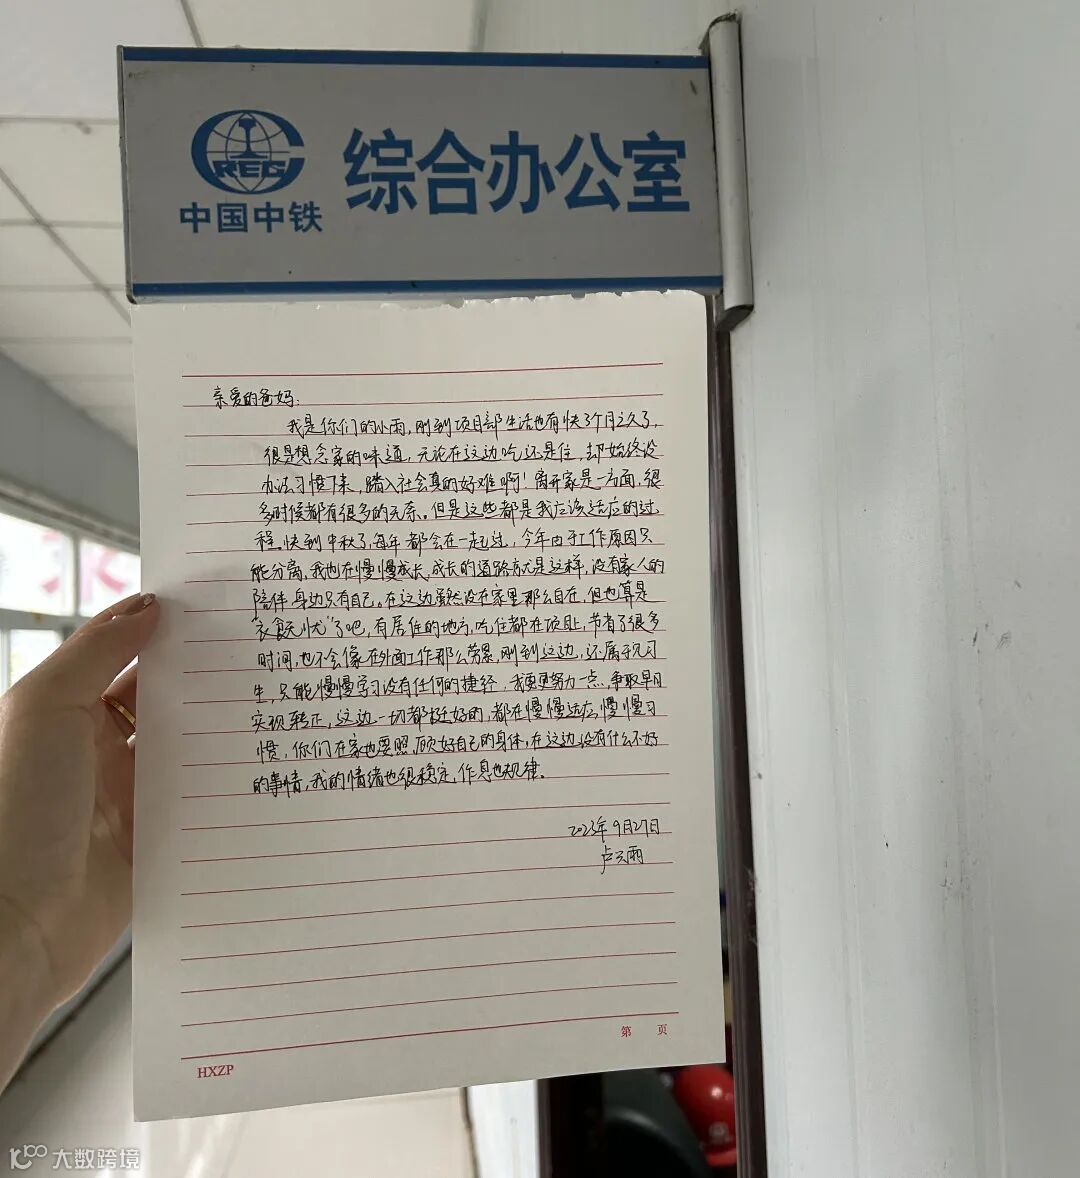 CREG
中国中铁
综合办公室
亲爱的爸妈：
我是你们的小雨，刚到项目部生活也有快3个月之久了，
很是想念家的味道，无论在这边吃还是住，却始终没
办法习惯下来，踏入社会真的好难啊！离开家是一方面，很
多时候都有很多的无奈。但是这些都是我应该适应的过
程。快到中秋了，每年都会在一起过，今年由于工作原因只
能分离，我也在慢慢成长，成长的道路大是这样，没有家人的
陪伴，身边只有自己。在这边虽然没在家里那么自在，但也算是
"衣食无忧"了吧，有居住的地方，吃住都在项目上，节省了很多
时间，也不会像在外面工作那么劳累，刚到这边，还属于见习
生，只能慢慢学习没有任何的捷径，我要更努力一点，争取早日
实现转正，这边一切都挺好的，都在慢慢适应，慢慢习
惯，你们在家也要照顾好自己的身体，在这边没有什么不好
的事情，我的情绪也很稳定，作息也规律。
2023年9月27日
卢云雨
第 页
HXZP
大数跨境